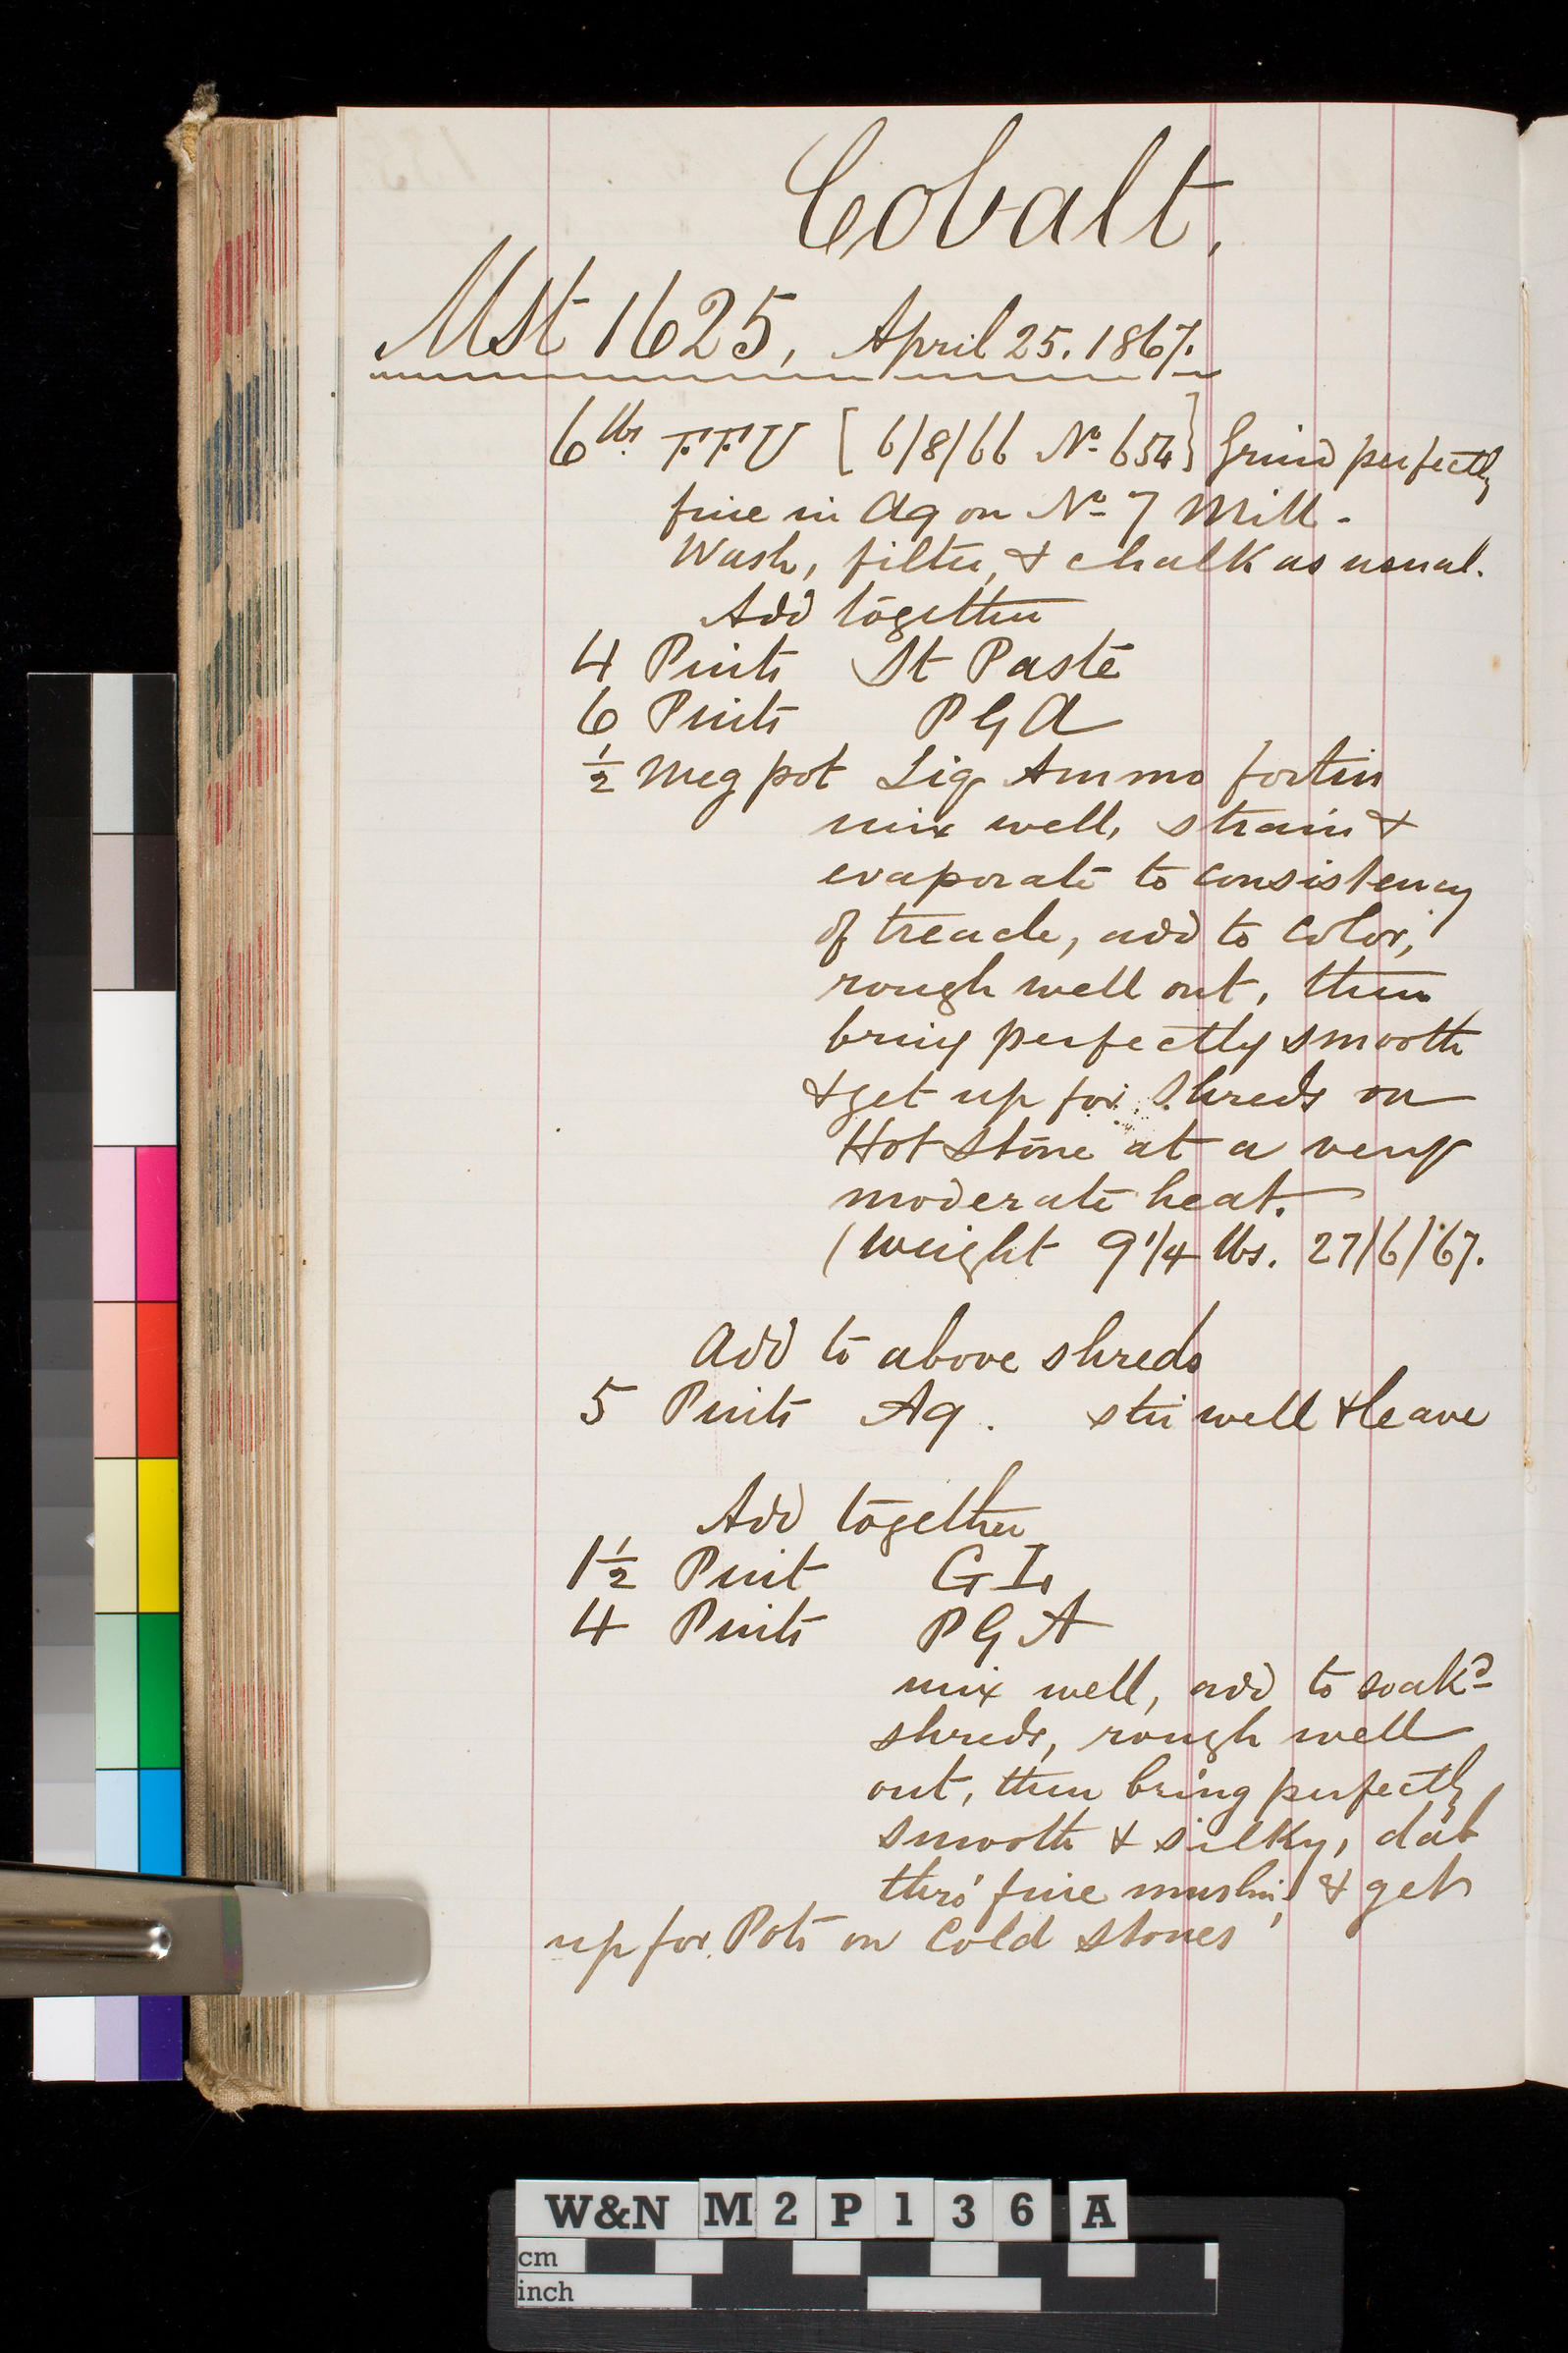 Cobalt.
Mst 1625, April 25. 1867.
6 lbs. F.F.U [6/8/66 No. 654] Grind perfectly
fine in Aq on No. 7 Mill.
Wash, filter, & chalk as usual.
Add together
4 Pints St Paste
6 Pints P G A
1/2 Meg pot Liq Ammo fortis
mix well, strain &
evaporate to consistency
of treacle, add to color,
rough well out, then
bring perfectly smooth
& get up for shreds on
Hot Stone at a very
moderate heat.
(Weight 9 1/4 lbs. 27/6/67.
Add to above shreds
5 Pints Aq. stir well & leave
Add together
1 1/2 Pint G L
4 Pints P G A
mix well, add to soakd
shreds, rough well
out, then bring perfectly
smooth & silky, dab
thro' fine muslin, & get
up for Pots on Cold Stones
W&N M2P136 A
cm
inch